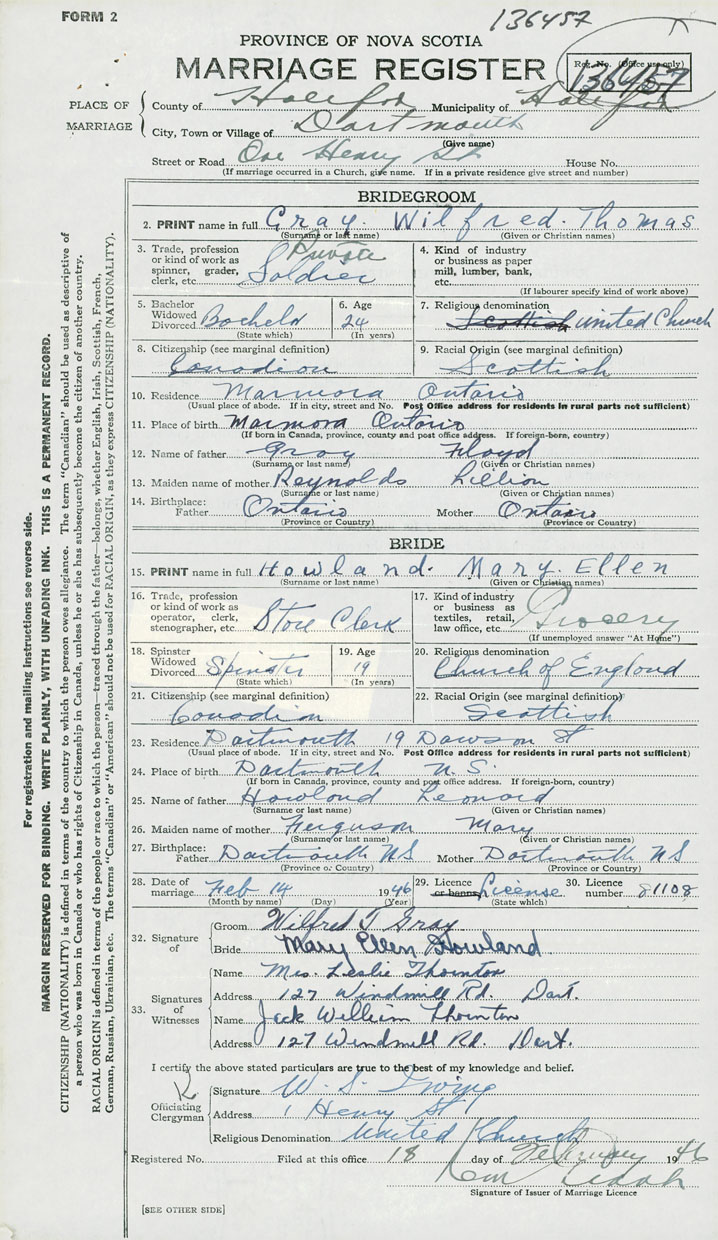 FORM 2
136457
PROVINCE OF NOVA SCOTIA
MARRIAGE REGISTER
Reg. No. (Office use only)
136457
PLACE OF MARRIAGE
County of Halifax Municipality of Halifax
City, Town or Village of Dartmouth
(Give name)
Street or Road One Henry St House No.
(If marriage occurred in a Church, give name. If in a private residence give street and number)
BRIDEGROOM
2. PRINT name in full Gray. Wilfred. Thomas
(Surname or last name) (Given or Christian names)
3. Trade, profession or kind of work as spinner, grader, clerk, etc. Private Soldier
4. Kind of industry or business as paper mill, lumber, bank, etc.
(If labourer specify kind of work above)
5. Bachelor Widowed Divorced Bachelor
(State which)
6. Age 24
(In years)
7. Religious denomination Scottish United Church
8. Citizenship (see marginal definition) Canadian
9. Racial Origin (see marginal definition) Scottish
10. Residence Marmora Ontario
(Usual place of abode. If in city, street and No. Post Office address for residents in rural parts not sufficient)
11. Place of birth Marmora Ontario
(If born in Canada, province, county and post office address. If foreign-born, country)
12. Name of father Gray Floyd
(Surname or last name) (Given or Christian names)
13. Maiden name of mother Reynolds Lillian
(Surname or last name) (Given or Christian names)
14. Birthplace: Father Ontario Mother Ontario
(Province or Country) (Province or Country)
BRIDE
15. PRINT name in full Howland. Mary. Ellen
(Surname or last name) (Given or Christian names)
16. Trade, profession or kind of work as operator, clerk, stenographer, etc. Store Clerk
17. Kind of industry or business as textiles, retail, law office, etc. Grocery
(If unemployed answer "At Home")
18. Spinster Widowed Divorced Spinster
(State which)
19. Age 19
(In years)
20. Religious denomination Church of England
21. Citizenship (see marginal definition) Canadian
22. Racial Origin (see marginal definition) Scottish
23. Residence Dartmouth 19 Dawson St
(Usual place of abode. If in city, street and No. Post Office address for residents in rural parts not sufficient)
24. Place of birth Dartmouth N.S.
(If born in Canada, province, county and post office address. If foreign-born, country)
25. Name of father Howland Leonard
(Surname or last name) (Given or Christian names)
26. Maiden name of mother Ferguson Mary
(Surname or last name) (Given or Christian names)
27. Birthplace: Father Dartmouth NS Mother Dartmouth NS
(Province or Country) (Province or Country)
28. Date of marriage Feb 14 1946
(Month by name) (Day) (Year)
29. Licence or banns License
(State which)
30. Licence number 81108
32. Signature of
Groom Wilfred T Gray
Bride Mary Ellen Howland
33. Signatures of Witnesses
Name Mrs. Leslie Thornton
Address 127 Windmill Rd. Dart.
Name Jack William Thornton
Address 127 Windmill Rd. Dart.
I certify the above stated particulars are true to the best of my knowledge and belief.
Officiating Clergyman
Signature W. S. Irving
Address 1 Henry St
Religious Denomination United Church
Registered No. Filed at this office 18 day of February 1946
Signature of Issuer of Marriage Licence
[SEE OTHER SIDE]
For registration and mailing instructions see reverse side.
MARGIN RESERVED FOR BINDING. WRITE PLAINLY, WITH UNFADING INK. THIS IS A PERMANENT RECORD.
CITIZENSHIP (NATIONALITY) is defined in terms of the country to which the person owes allegiance. The term "Canadian" should be used as descriptive of
a person who was born in Canada or who has rights of Citizenship in Canada, unless he or she has subsequently become the citizen of another country.
RACIAL ORIGIN is defined in terms of the people or race to which the person—traced through the father—belongs, whether English, Irish, Scottish, French,
German, Russian, Ukrainian, etc. The terms "Canadian" or "American" should not be used for RACIAL ORIGIN, as they express CITIZENSHIP (NATIONALITY).